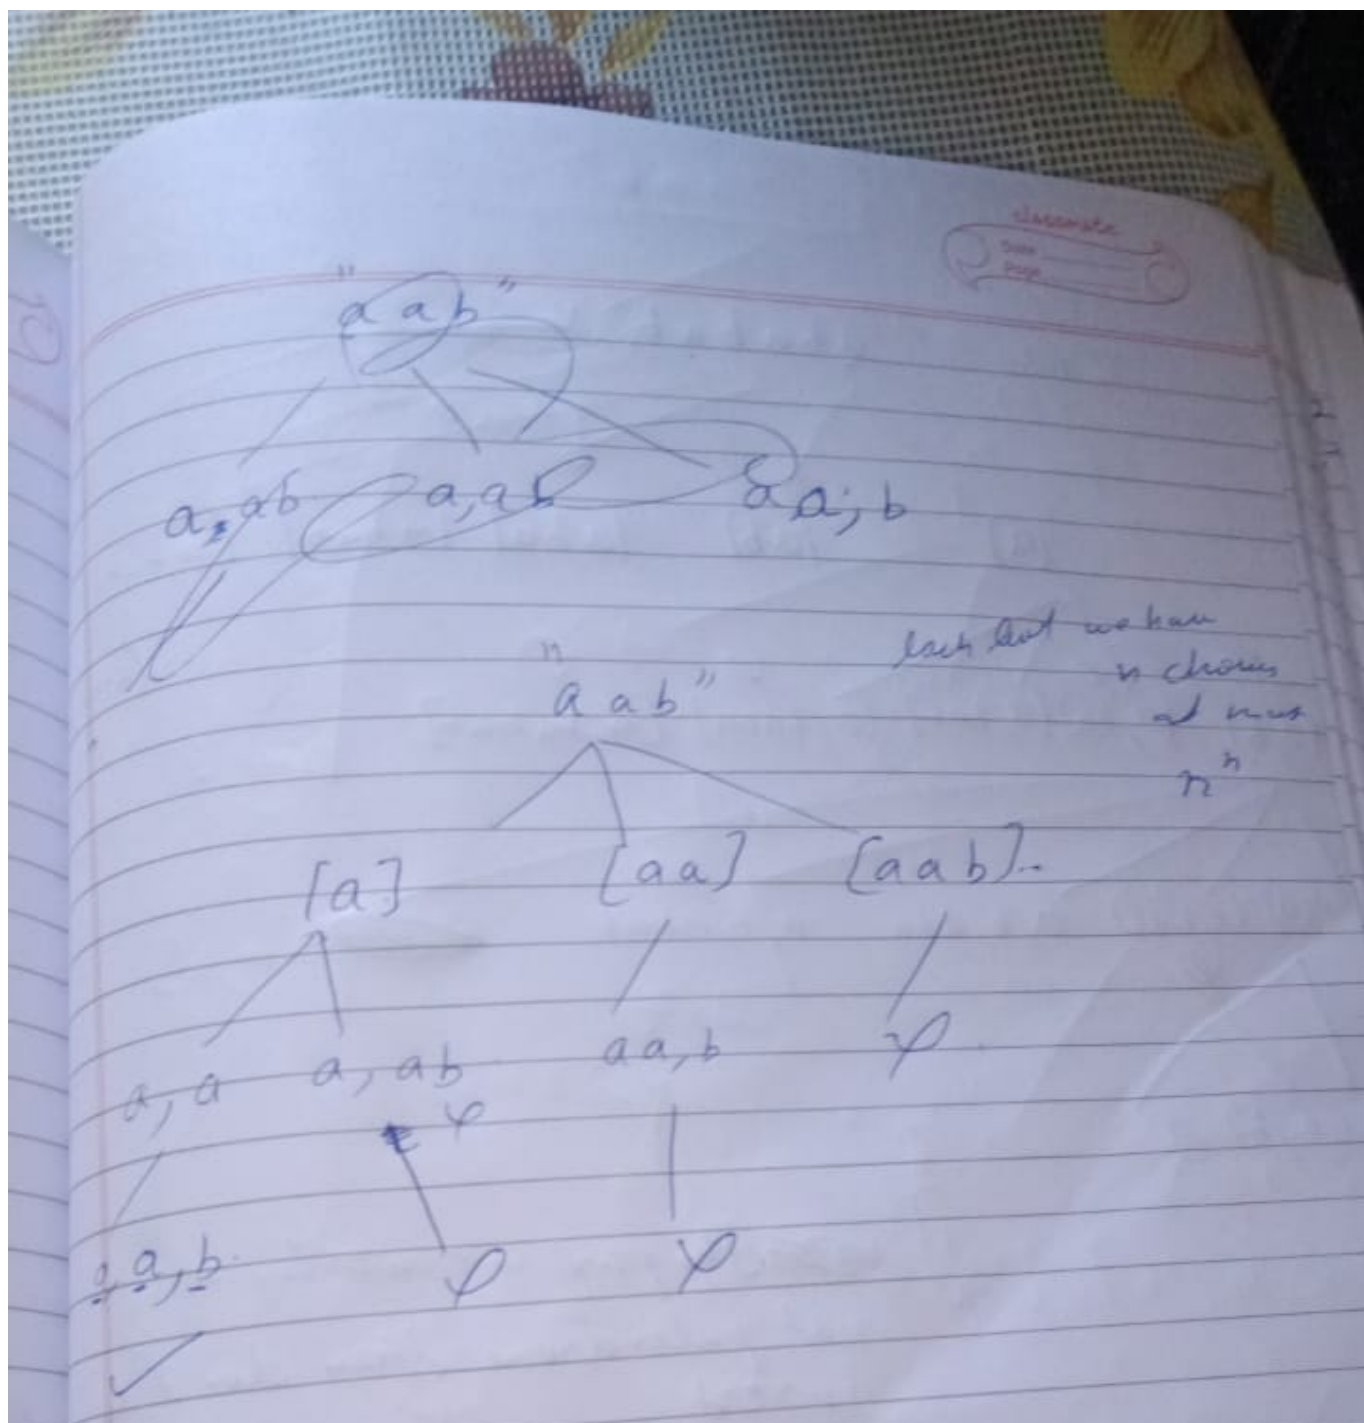 classmate
Date
Page
"aab"
a, ab a, ab aa, b
"aab"
each we have
n
at
n^n
[a] [aa] [aab]..
a, a a, ab aa, b φ
φ
a, a, b φ φ